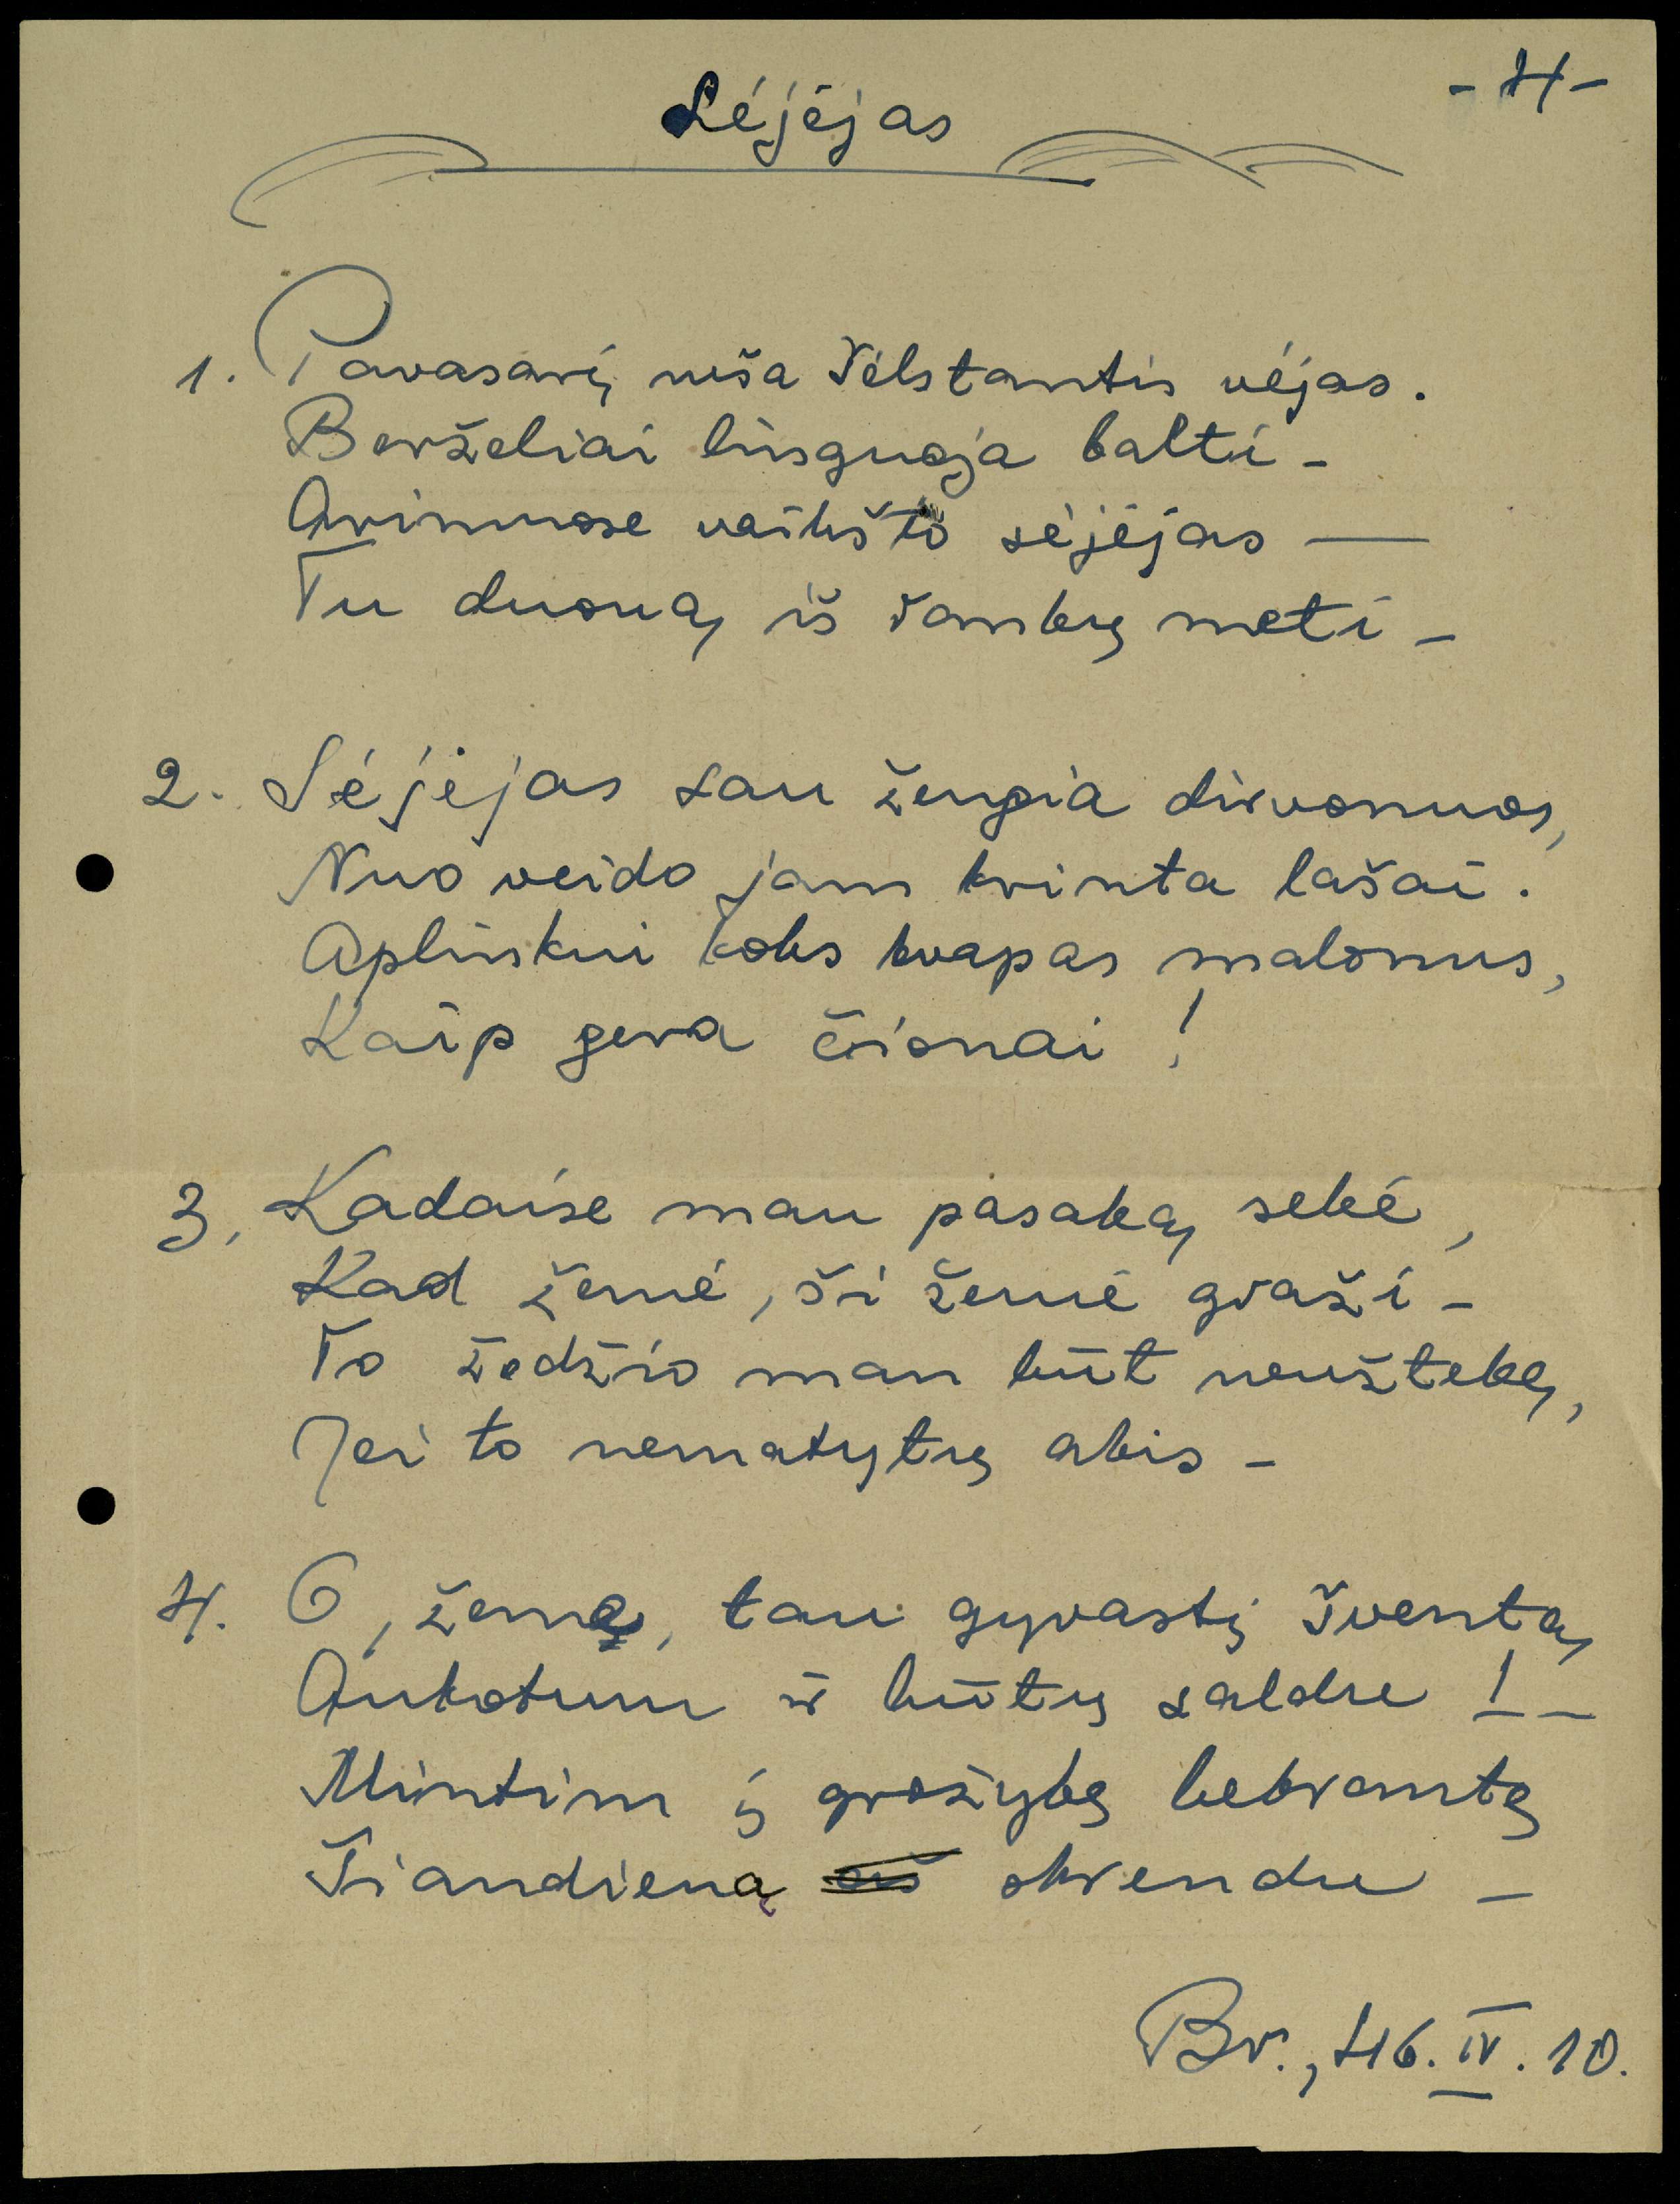 - 4 -
Sėjėjas
1. Pavasarį neša šilstantis vėjas.
Berželiai linguoja balti -
Arimuose vaikšto sėjėjas —
Tu duoną iš rankų meti -
2. Sėjėjas sau žengia dirvonuos,
Nuo veido jam krinta lašai.
Aplinkui koks kvapas malonus,
Kaip gera čionai!
3. Kadaise man pasaką sekė,
Kad žemė, ši žemė graži -
To žodžio man būt neužtekę,
Jei to nematytų akis -
4. O, žeme, tau gyvastį šventą
Aukotum ir būtų saldu! -
Mintim į grožybę bekrantę
Šiandieną skrendu -
Br., 46. IV. 10.